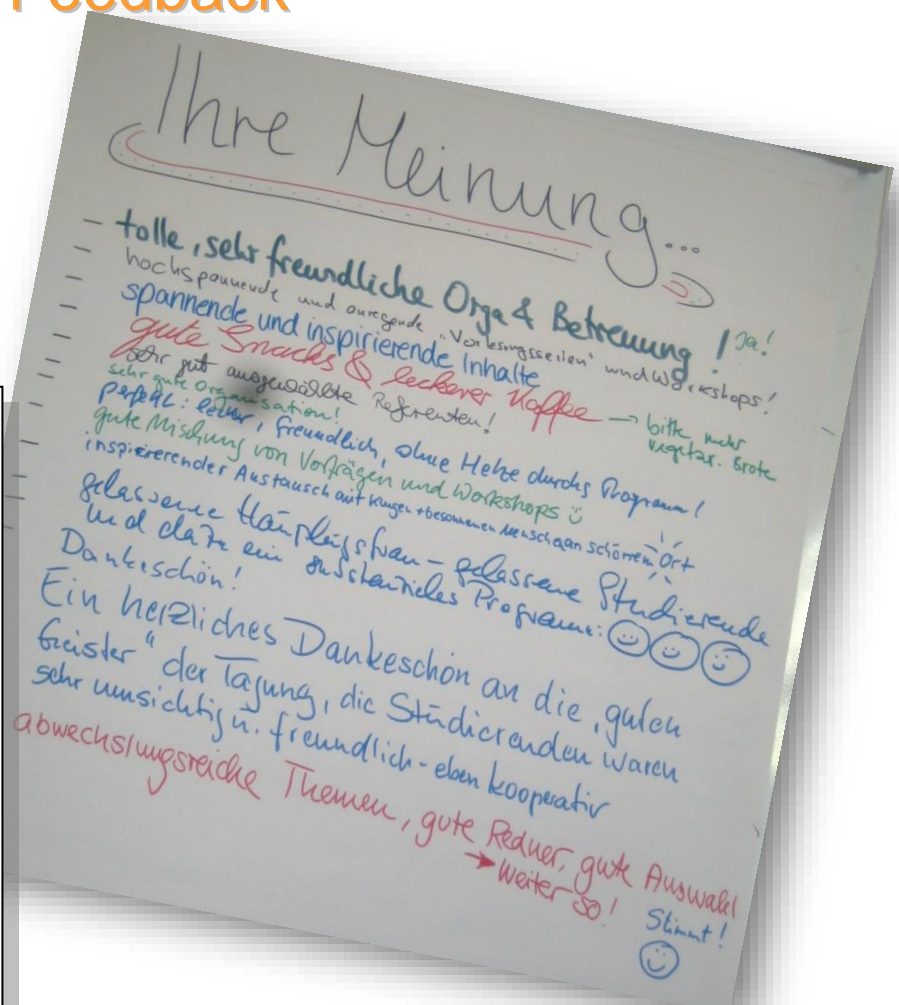 Feedback
Ihre Meinung...
tolle, sehr freundliche Orga & Betreuung! Ja!
hochspannende und anregende "Vorlesungsseilen" und Workshops!
spannende und inspirierende Inhalte
gute Snacks & leckerer Kaffee → bitte mehr
vegetar. Brote
sehr gut ausgewählte Referenten!
sehr gute Organisation!
perfekt: lecker, freundlich, ohne Hetze durchs Programm!
gute Mischung von Vorträgen und Workshops ü
inspirierender Austausch mit klugen + besonnenen Menschen an schönem Ort
gelassene Häuplingsfrau – gelassene Studierende
und dazu ein substantielles Programm: ☺☺☺
Dankeschön!
Ein herzliches Dankeschön an die „guten
Geister" der Tagung, die Studierenden waren
sehr umsichtig u. freundlich - eben kooperativ
abwechslungsreiche Themen, gute Redner, gute Auswahl
→ weiter so! Stimmt!
☺